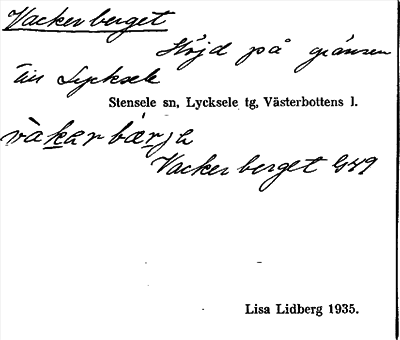 Vackerberget
Höjd på gränsen
till Lycksele
Stensele sn, Lycksele tg, Västerbottens l.
vàkar bærjə
Vackerberget G49
Lisa Lidberg 1935.